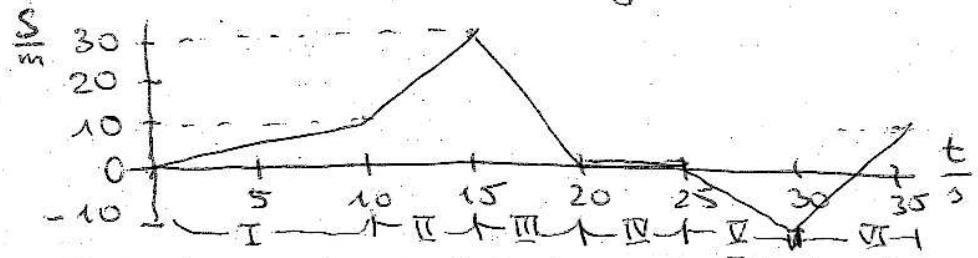 S/m
30
20
10
0
-10
5 10 15 20 25 30 35
t/s
I II III IV V VI